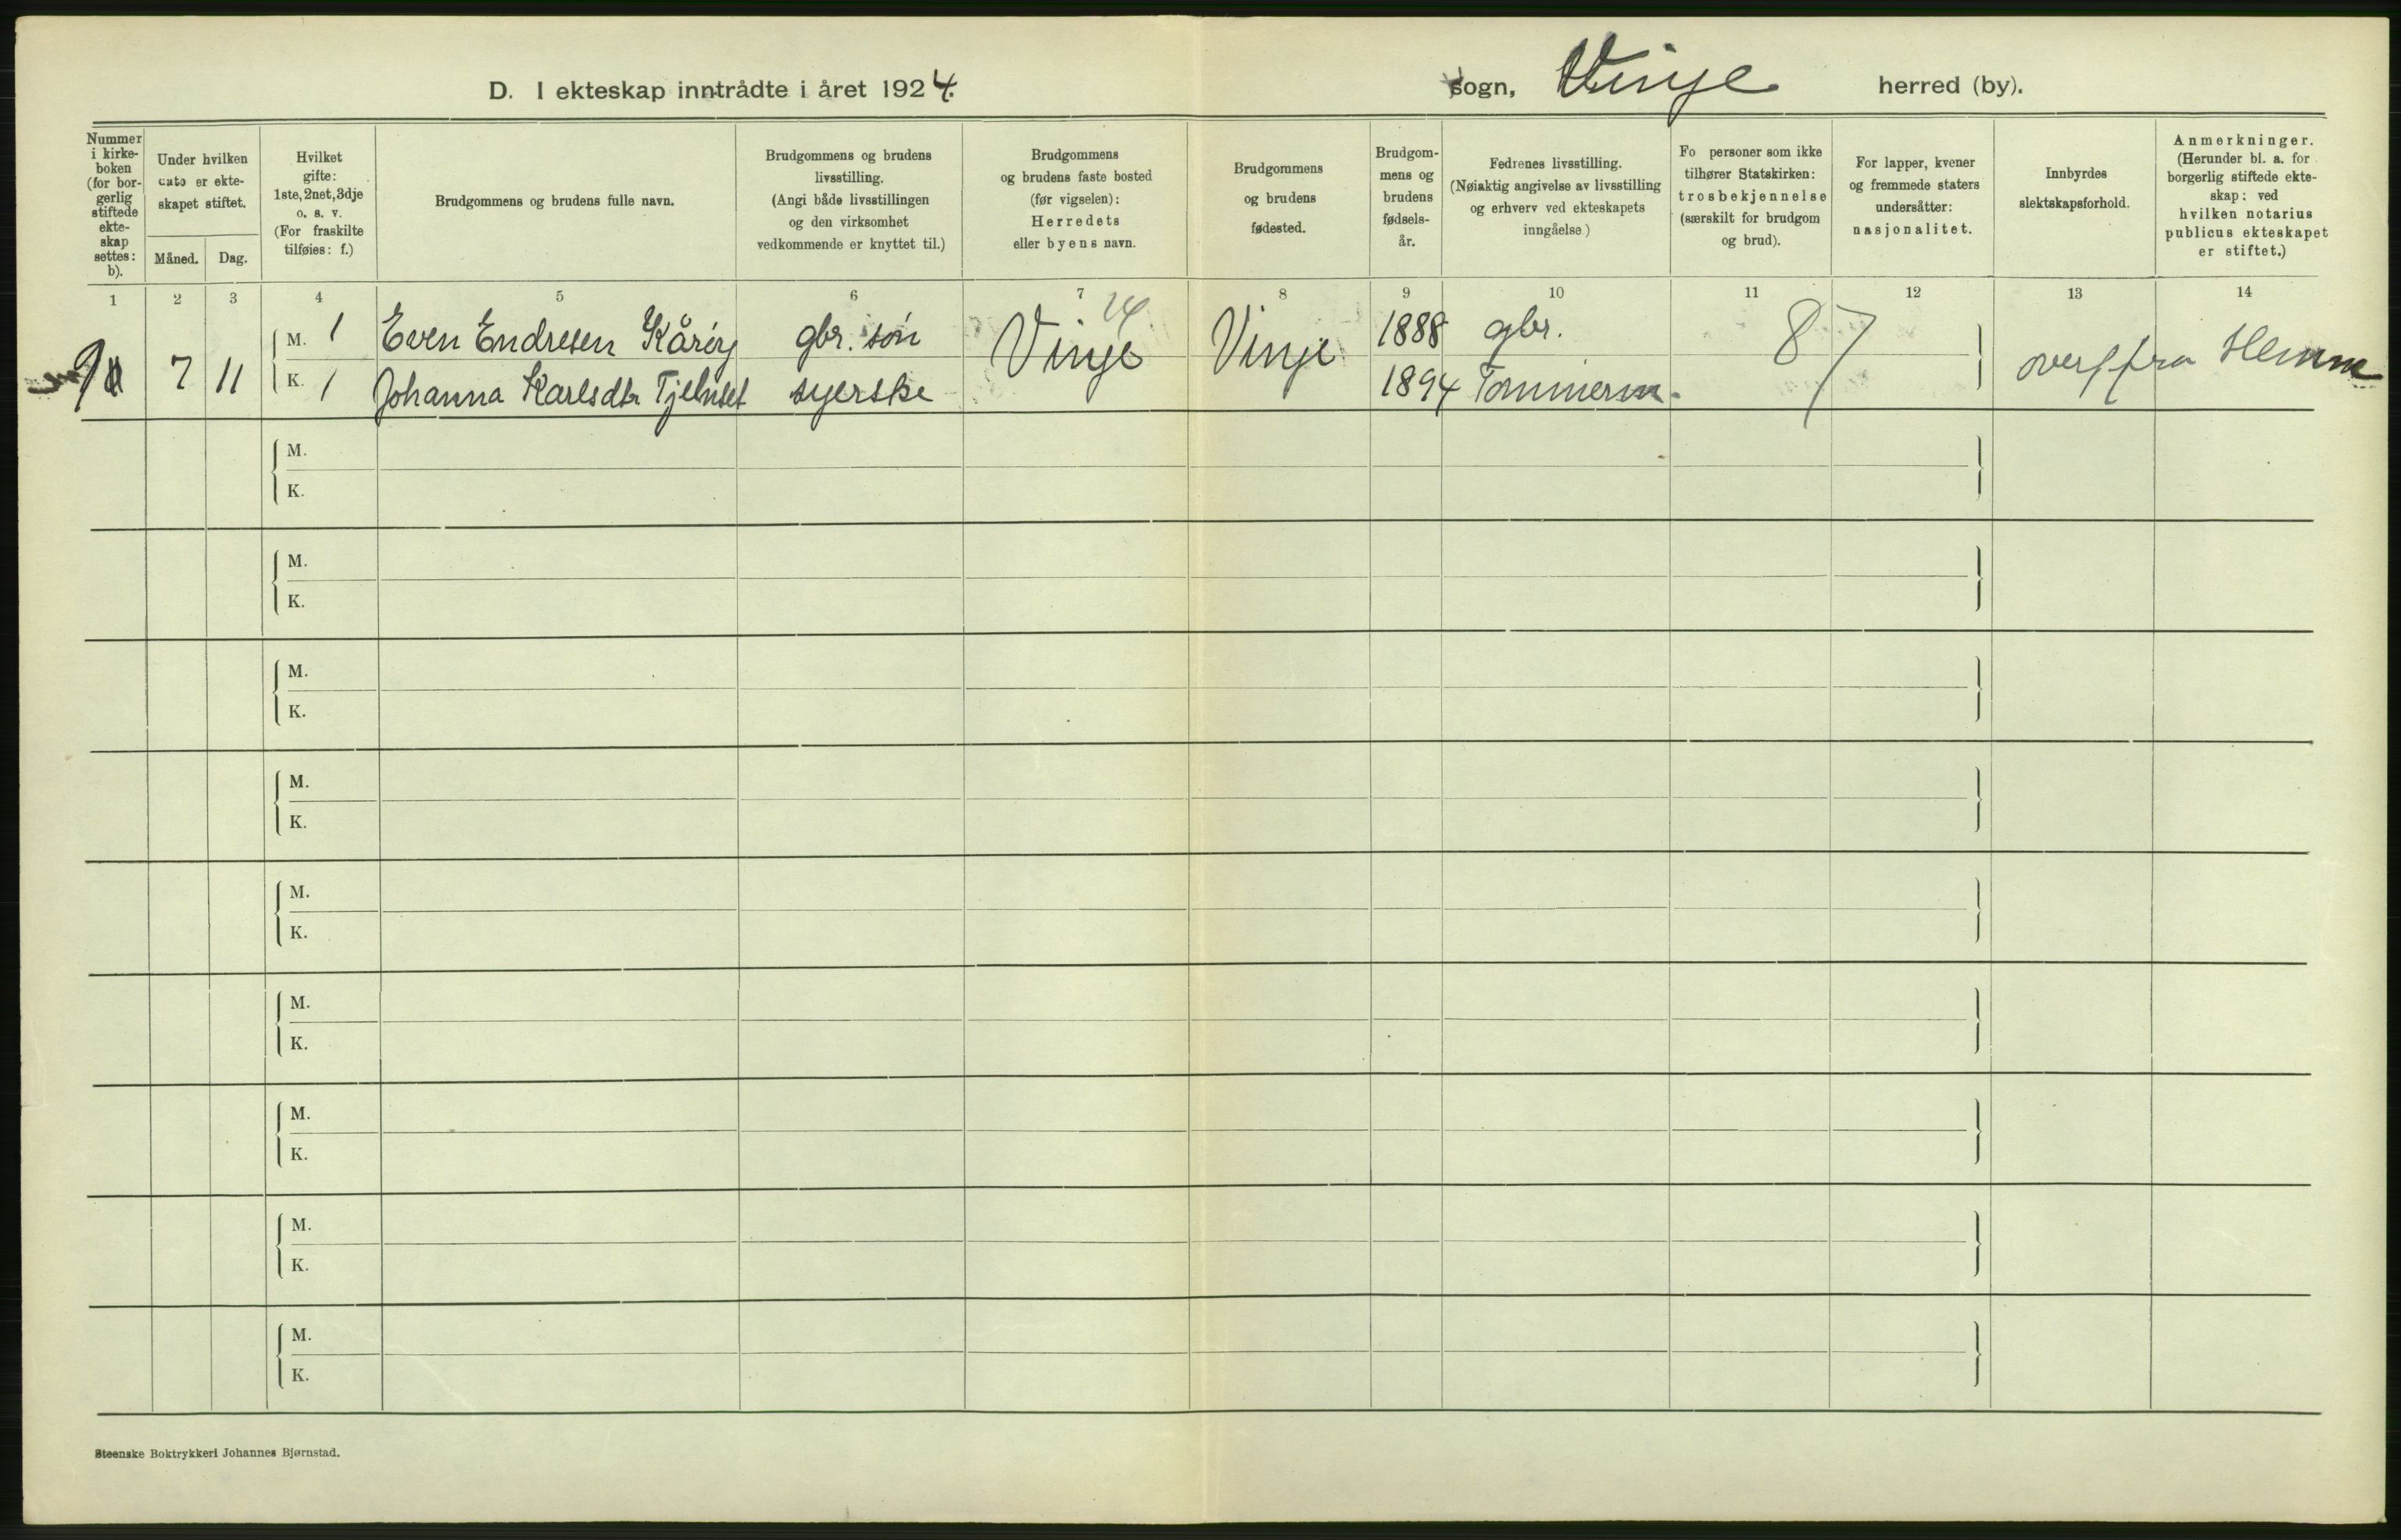 D. I ekteskap inntrådte i året 1924.
sogn, Vinje herred (by).
Nummer i kirke- boken (for bor- gerlig stiftede ekte- skap settes: b).
Under hvilken dato er ekte- skapet stiftet.
Måned. Dag.
Hvilket gifte: 1ste, 2net, 3dje o. s. v. (For fraskilte tilføies: f.)
Brudgommens og brudens fulle navn.
Brudgommens og brudens livsstilling. (Angi både livsstillingen og den virksomhet vedkommende er knyttet til.)
Brudgommens og brudens faste bosted (før vigselen): Herredets eller byens navn.
Brudgommens og brudens fødested.
Brudgom- mens og brudens fødsels- år.
Fedrenes livsstilling. (Nøiaktig angivelse av livsstilling og erhverv ved ekteskapets inngåelse.)
Fo personer som ikke tilhører Statskirken: trosbekjennelse (særskilt for brudgom og brud).
For lapper, kvener og fremmede staters undersåtter: nasjonalitet.
Innbyrdes slektskapsforhold.
Anmerkninger. (Herunder bl. a. for borgerlig stiftede ekte- skap: ved hvilken notarius publicus ekteskapet er stiftet.)
1 2 3 4 5 6 7 8 9 10 11 12 13 14
M. 1 Even Endresen Kårøy gbr. søn 1888 gbr.
9 7 11 Vinje Vinje 87 overf fra Hemne
K. 1 Johanna Karlsdtr Tjelnset syerske 1894 Tømmerm.
M.
K.
M.
K.
M.
K.
M.
K.
M.
K.
M.
K.
M.
K.
M.
K.
M.
K.
Steenske Boktrykkeri Johannes Bjørnstad.